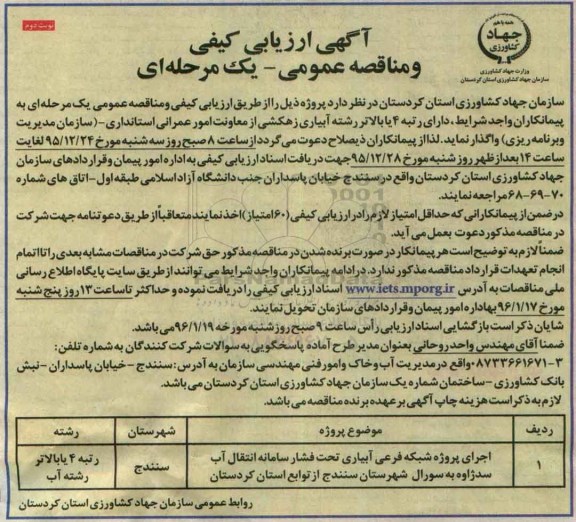 نوبت دوم
همه با هم
جهاد
کشاورزی
وزارت جهاد کشاورزی
سازمان جهاد کشاورزی استان کردستان
آگهی ارزیابی کیفی
ومناقصه عمومی - یک مرحله‌ای
سازمان جهاد کشاورزی استان کردستان در نظر دارد پروژه ذیل را از طریق ارزیابی کیفی ومناقصه عمومی یک مرحله‌ای به
پیمانکاران واجد شرایط، دارای رتبه ۴ یا بالاتر رشته آبیاری زهکشی از معاونت امور عمرانی استانداری-(سازمان مدیریت
وبرنامه ریزی) واگذار نماید. لذا از پیمانکاران ذیصلاح دعوت می گردد از ساعت ۸ صبح روز سه شنبه مورخ ۹۵/۱۲/۲۴ لغایت
ساعت ۱۴ بعد از ظهر روز شنبه مورخ ۹۵/۱۲/۲۸ جهت دریافت اسناد ارزیابی کیفی به اداره امور پیمان وقراردادهای سازمان
جهاد کشاورزی استان کردستان واقع در سنندج خیابان پاسداران جنب دانشگاه آزاد اسلامی طبقه اول-اتاق های شماره
۷۰-۶۹-۶۸ مراجعه نمایند.
در ضمن از پیمانکارانی که حداقل امتیاز لازم را در ارزیابی کیفی (۶۰ امتیاز) اخذ نمایند متعاقباً از طریق دعوتنامه جهت شرکت
در مناقصه مذکور دعوت بعمل می آید.
ضمناً لازم به توضیح است هر پیمانکار در صورت برنده شدن در مناقصه مذکور حق شرکت در مناقصات مشابه بعدی را تا اتمام
انجام تعهدات قرارداد مناقصه مذکور ندارد. در ادامه پیمانکاران واجد شرایط می توانند از طریق سایت پایگاه اطلاع رسانی
ملی مناقصات به آدرس www.iets.mporg.ir اسناد ارزیابی کیفی را دریافت نموده و حداکثر تا ساعت ۱۳ روز پنج شنبه
مورخ ۹۶/۱/۱۷ به اداره امور پیمان وقراردادهای سازمان تحویل نمایند.
شایان ذکر است بازگشایی اسناد ارزیابی رأس ساعت ۹ صبح روز شنبه مورخه ۹۶/۱/۱۹ می باشد.
ضمنا آقای مهندس واحد روحانی بعنوان مدیر طرح آماده پاسخگویی به سوالات شرکت کنندگان به شماره تلفن:
۳-۰۸۷۳۳۶۶۱۶۷۱ واقع در مدیریت آب وخاک وامور فنی مهندسی سازمان به آدرس: سنندج - خیابان پاسداران - نبش
بانک کشاورزی - ساختمان شماره یک سازمان جهاد کشاورزی استان کردستان می باشد.
لازم به ذکر است هزینه چاپ آگهی بر عهده برنده مناقصه می باشد.
ردیف موضوع پروژه شهرستان رشته
۱ اجرای پروژه شبکه فرعی آبیاری تحت فشار سامانه انتقال آب سنندج رتبه ۴ یا بالاتر
سد ژاوه به سورال شهرستان سنندج از توابع استان کردستان رشته آب
روابط عمومی سازمان جهاد کشاورزی استان کردستان